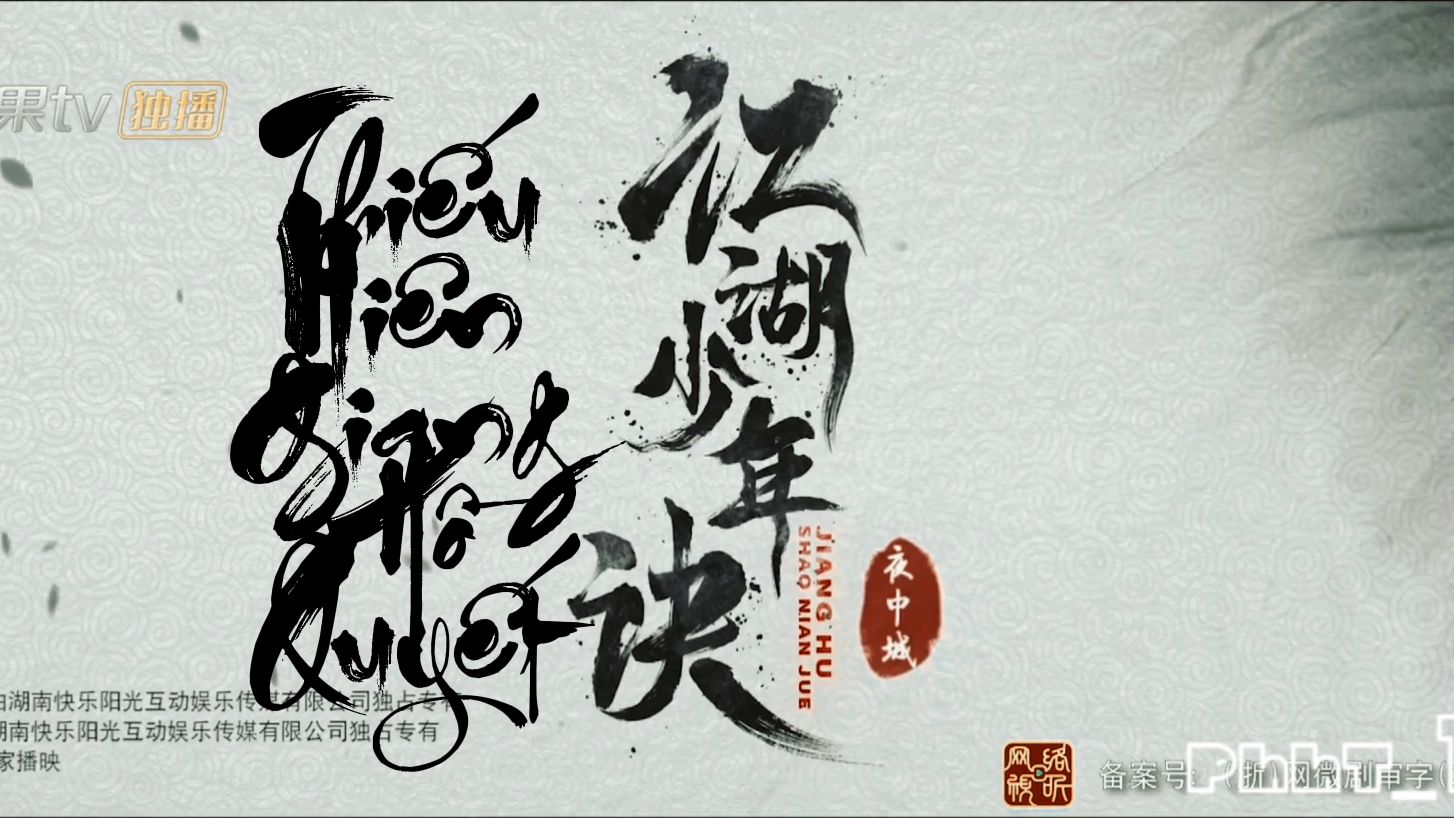 果tv 独播
Thiếu
Niên
Giang
Hồ
Quyết
江湖少年诀
JIANG HU
SHAO NIAN JUE
夜中城
由湖南快乐阳光互动娱乐传媒有限公司独占专有
湖南快乐阳光互动娱乐传媒有限公司独占专有
家播映
网络视听
备案号:
网微剧审字(
PhhT_